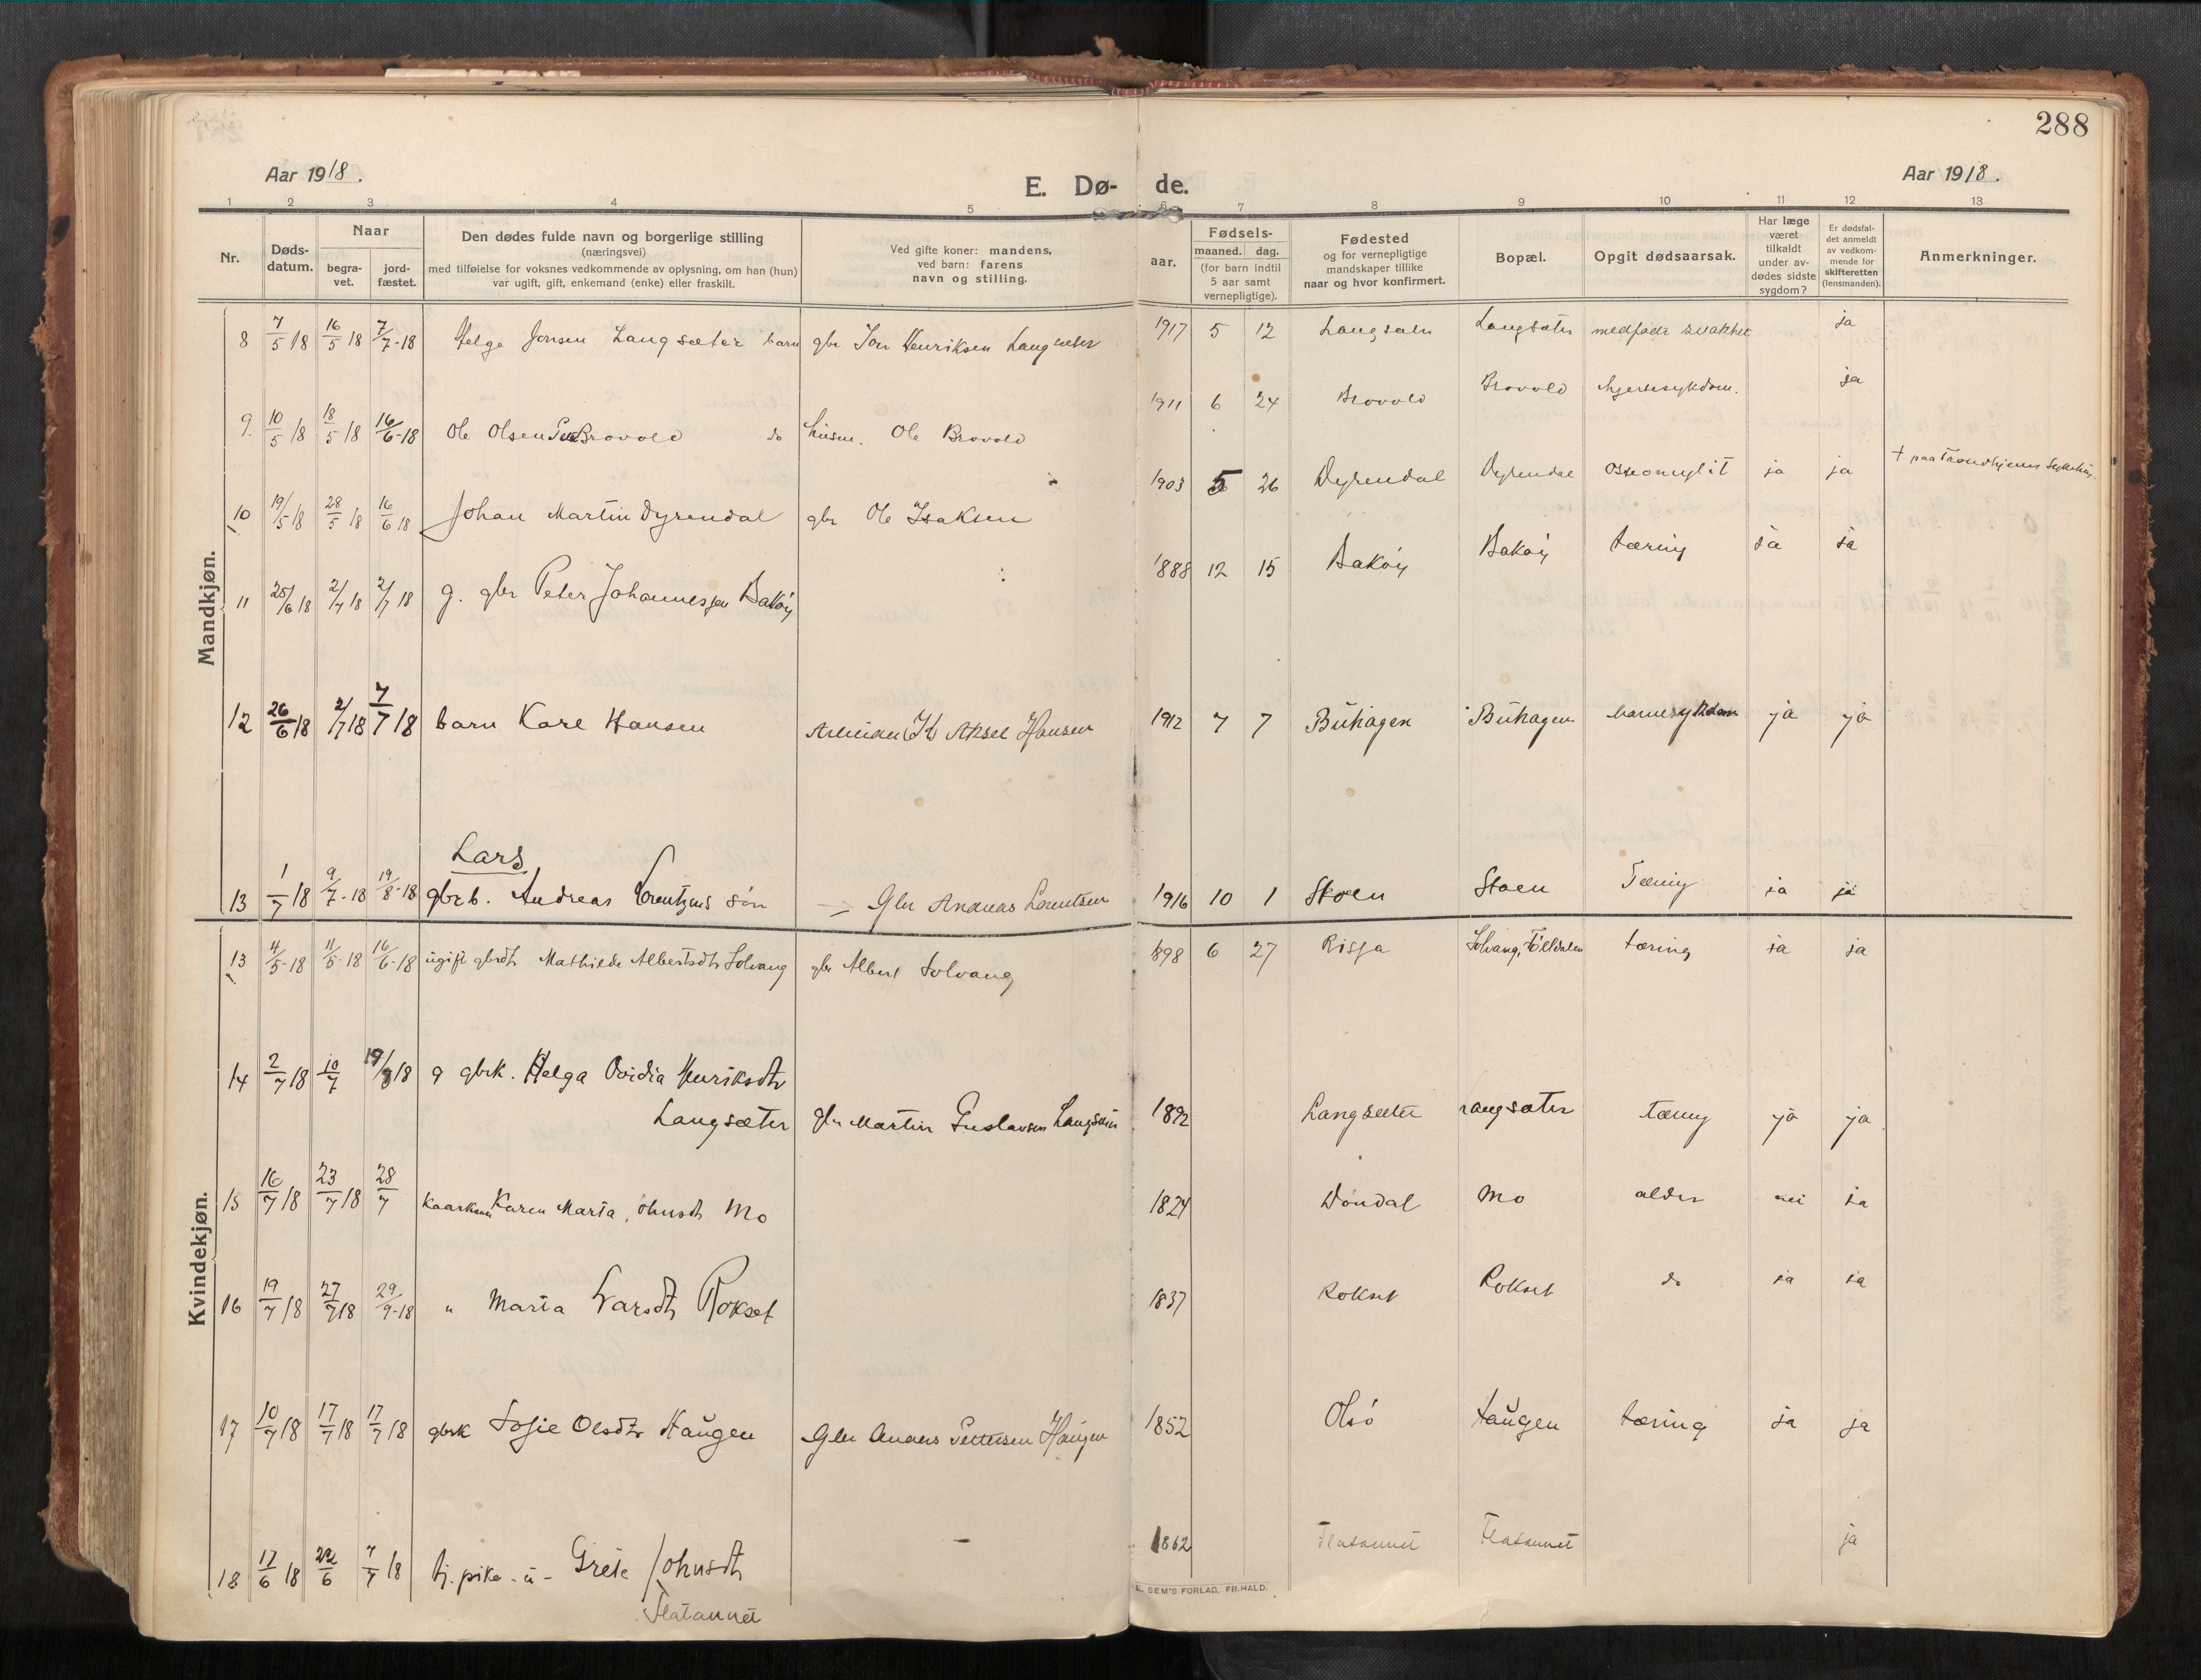 288
Aar 1918.
E. Dø- de.
Aar 1918.
1 2 3 4 5 6 7 8 9 10 11 12 13
Nr.
Døds-
datum.
Naar
begra-
vet.
jord-
fæstet.
Den dødes fulde navn og borgerlige stilling
(næringsvei)
med tilføielse for voksnes vedkommende av oplysning, om han (hun)
var ugift, gift, enkemand (enke) eller fraskilt.
Ved gifte koner: mandens,
ved barn: farens
navn og stilling.
aar.
Fødsels-
maaned. dag.
(for barn indtil
5 aar samt
vernepligtige).
Fødested
og for vernepligtige
mandskaper tillike
naar og hvor konfirmert.
Bopæl.
Opgit dødsaarsak.
Har læge
været
tilkaldt
under av-
dødes sidste
sygdom?
Er dødsfal-
det anmeldt
av vedkom-
mende for
skifteretten
(lensmanden).
Anmerkninger.
Mandkjøn.
8 7/5 18 16/5 18 7/7-18 Helge Jonsen Langsæter barn gbr Jon Henriksen Langsæter 1917 5 12 Langsæter Langsæter medfødt svakhet ja
9. 10/5 18 18/5 18 16/6-18 Ole Olsen Brovold do husm. Ole Brovold 1911 6 24 Brovold Brovold hjertesykdom. ja
10 19/5 18 28/5 18 16/6 18 Johan Martin Dyrendal gbr Ole Isaksen 1903 5 26 Dyrendal Dyrendal ja ja + paa Trondhjems Sykehus.
11 25/6 18 2/7 18 2/7 18 g. gbr Peter Johannessen Bakøy 1888 12 15 Bakøy Bakøy tæring ja ja
12 26/6 18 2/7 18 7/7 18 barn Kare Hansen Arbeider (H) Aksel Hansen 1912 7 7 Buhagen Buhagen barnesykdom ja ja
Lars
13 1/7 18 9/7-18 19/8-18 gbrb. Andreas Lorentzens søn Gbr Andreas Lorentsen 1916 10 1 Skoen Stoen Tæring ja ja
Kvindekjøn.
13 4/5-18 11/5-18 16/6-18 ugift gbrdt Mathilde Albertsdtr Solvang gbr Albert Solvang 1898 6 27 Rissa Solvang, Følldalen tæring ja ja
14 2/7 18 10/7 19/8 18 g gbrk. Helga Ovidia Henriksdtr
Langsæter gbr Martin Gustavsen Langsæter 1892 Langsæter Langsæter tæring ja ja
15 16/7 18 23/7 18 28/7 Karen Maria Johnsdt Mo 1824 Døndal Mo alder nei ja
16 19/7 18 27/7 18 29/9-18 " Maria Larsdt Rokset 1837 Rokset Rokset do ja ja
17 10/7 18 17/7 18 17/7 18 gbrk Sofie Olsdtr Haugen Gbr Anders Pettersen Haugen 1852 Olsø Haugen tæring ja ja
18 17/6 18 22/6 7/7 18 tj. pike - u - Grete Johnsdt - 1862 Flatannet Flatannet ja
Flatannet
E. SEM'S FORLAG, FR.HALD.